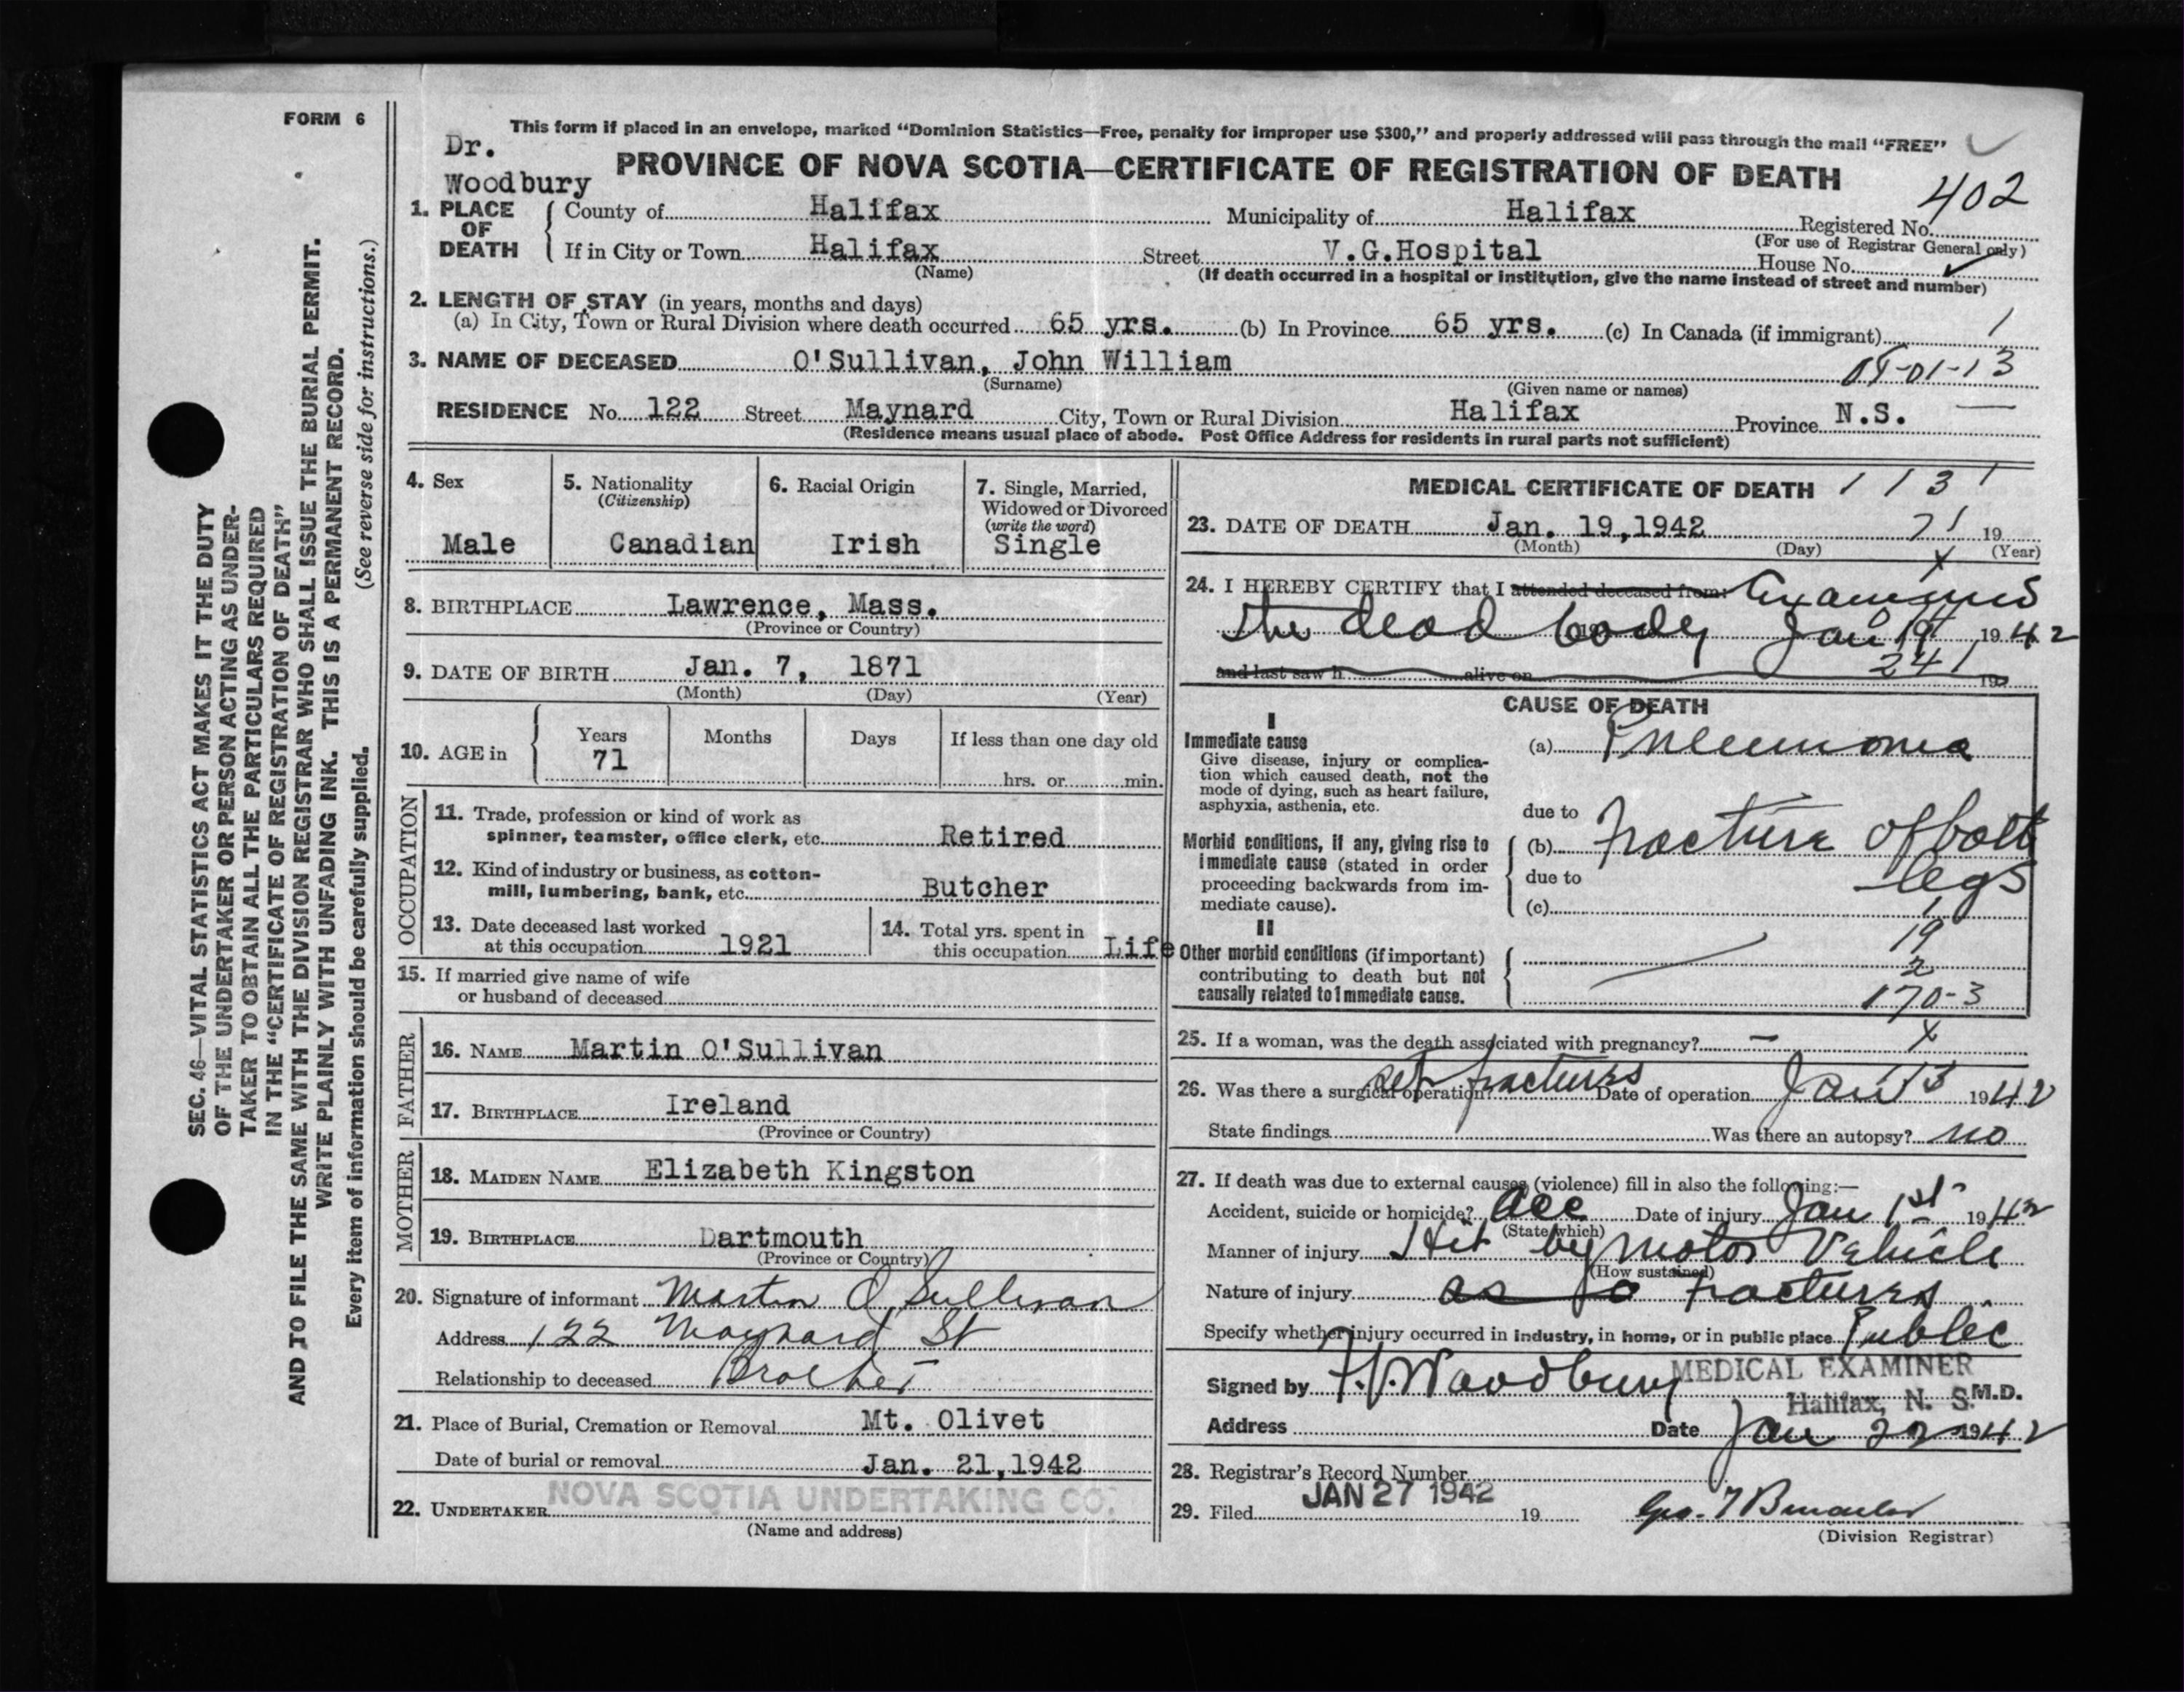 FORM 6
SEC. 46—VITAL STATISTICS ACT MAKES IT THE DUTY
OF THE UNDERTAKER OR PERSON ACTING AS UNDER-
TAKER TO OBTAIN ALL THE PARTICULARS REQUIRED
IN THE "CERTIFICATE OF REGISTRATION OF DEATH"
AND TO FILE THE SAME WITH THE DIVISION REGISTRAR WHO SHALL ISSUE THE BURIAL PERMIT.
WRITE PLAINLY WITH UNFADING INK. THIS IS A PERMANENT RECORD.
Every item of information should be carefully supplied. (See reverse side for instructions.)
This form if placed in an envelope, marked "Dominion Statistics—Free, penalty for improper use $300," and properly addressed will pass through the mail "FREE"
Dr.
Woodbury
PROVINCE OF NOVA SCOTIA—CERTIFICATE OF REGISTRATION OF DEATH
402
1. PLACE OF DEATH County of Halifax Municipality of Halifax Registered No.
(For use of Registrar General only)
If in City or Town Halifax Street V.G.Hospital House No.
(Name) (If death occurred in a hospital or institution, give the name instead of street and number)
2. LENGTH OF STAY (in years, months and days)
(a) In City, Town or Rural Division where death occurred 65 yrs. (b) In Province 65 yrs. (c) In Canada (if immigrant) 1
3. NAME OF DECEASED O'Sullivan, John William
(Surname) (Given name or names)
RESIDENCE No. 122 Street Maynard City, Town or Rural Division Halifax Province N.S.
(Residence means usual place of abode. Post Office Address for residents in rural parts not sufficient)
4. Sex
Male
5. Nationality
(Citizenship)
Canadian
6. Racial Origin
Irish
7. Single, Married,
Widowed or Divorced
(write the word)
Single
8. BIRTHPLACE Lawrence, Mass.
(Province or Country)
9. DATE OF BIRTH Jan. 7, 1871
(Month) (Day) (Year)
10. AGE in Years Months Days If less than one day old
71 hrs. or min.
OCCUPATION
11. Trade, profession or kind of work as
spinner, teamster, office clerk, etc. Retired
12. Kind of industry or business, as cotton-
mill, lumbering, bank, etc. Butcher
13. Date deceased last worked
at this occupation 1921
14. Total yrs. spent in
this occupation Life
15. If married give name of wife
or husband of deceased
FATHER
16. NAME Martin O'Sullivan
17. BIRTHPLACE Ireland
(Province or Country)
MOTHER
18. MAIDEN NAME Elizabeth Kingston
19. BIRTHPLACE Dartmouth
(Province or Country)
20. Signature of informant Martin O'Sullivan
Address 122 Maynard St
Relationship to deceased Brother
21. Place of Burial, Cremation or Removal Mt. Olivet
Date of burial or removal Jan. 21,1942
22. UNDERTAKER NOVA SCOTIA UNDERTAKING CO.
(Name and address)
MEDICAL CERTIFICATE OF DEATH 1 1 3 1
23. DATE OF DEATH Jan. 19,1942 71 19
(Month) (Day) (Year)
24. I HEREBY CERTIFY that I attended deceased from: Examined
the dead body Jan 19 1942
and last saw h alive on 241 19
CAUSE OF DEATH
I
Immediate cause
Give disease, injury or complica-
tion which caused death, not the
mode of dying, such as heart failure,
asphyxia, asthenia, etc.
(a) Pneumonia
due to
Morbid conditions, if any, giving rise to
immediate cause (stated in order
proceeding backwards from im-
mediate cause).
(b) Fracture of both
due to legs
(c) 1
II
Other morbid conditions (if important)
contributing to death but not
causally related to immediate cause.
19
2
170-3
25. If a woman, was the death associated with pregnancy? — X
26. Was there a surgical operation? set fractures Date of operation Jan 13 1942
State findings Was there an autopsy? no
27. If death was due to external causes (violence) fill in also the following:—
Accident, suicide or homicide? Acc Date of injury Jan 1st 1942
(State which)
Manner of injury Hit by Motor Vehicle
(How sustained)
Nature of injury as to fractures
Specify whether injury occurred in industry, in home, or in public place Public
MEDICAL EXAMINER
Signed by Woodbury Halifax, N. S. M.D.
Address Date Jan 22 1942
28. Registrar's Record Number
29. Filed JAN 27 1942 19
(Division Registrar)